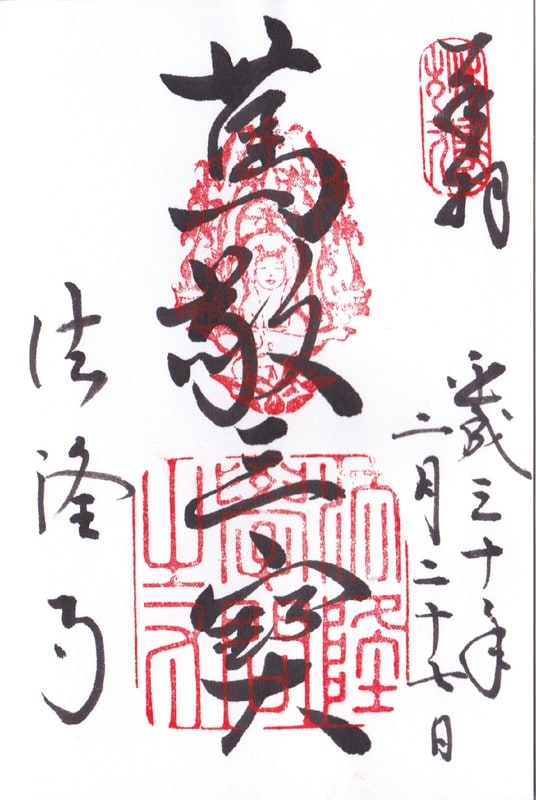 奉拝
平成三十年
二月二十七日
篤敬三寶
法隆
學問
法隆寺